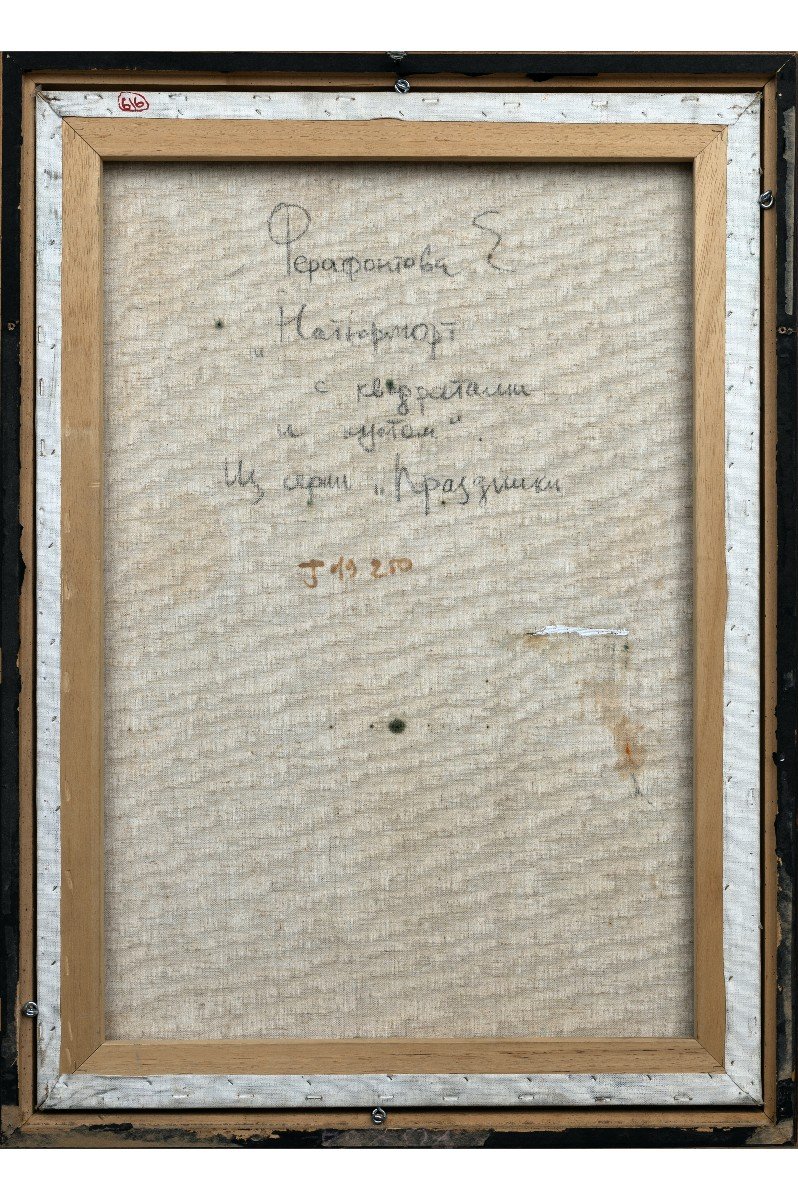 616
Ферафонтова Е
„Натюрморт
с квадратами
и кутом“.
Из серии „Праздники
J 19 250